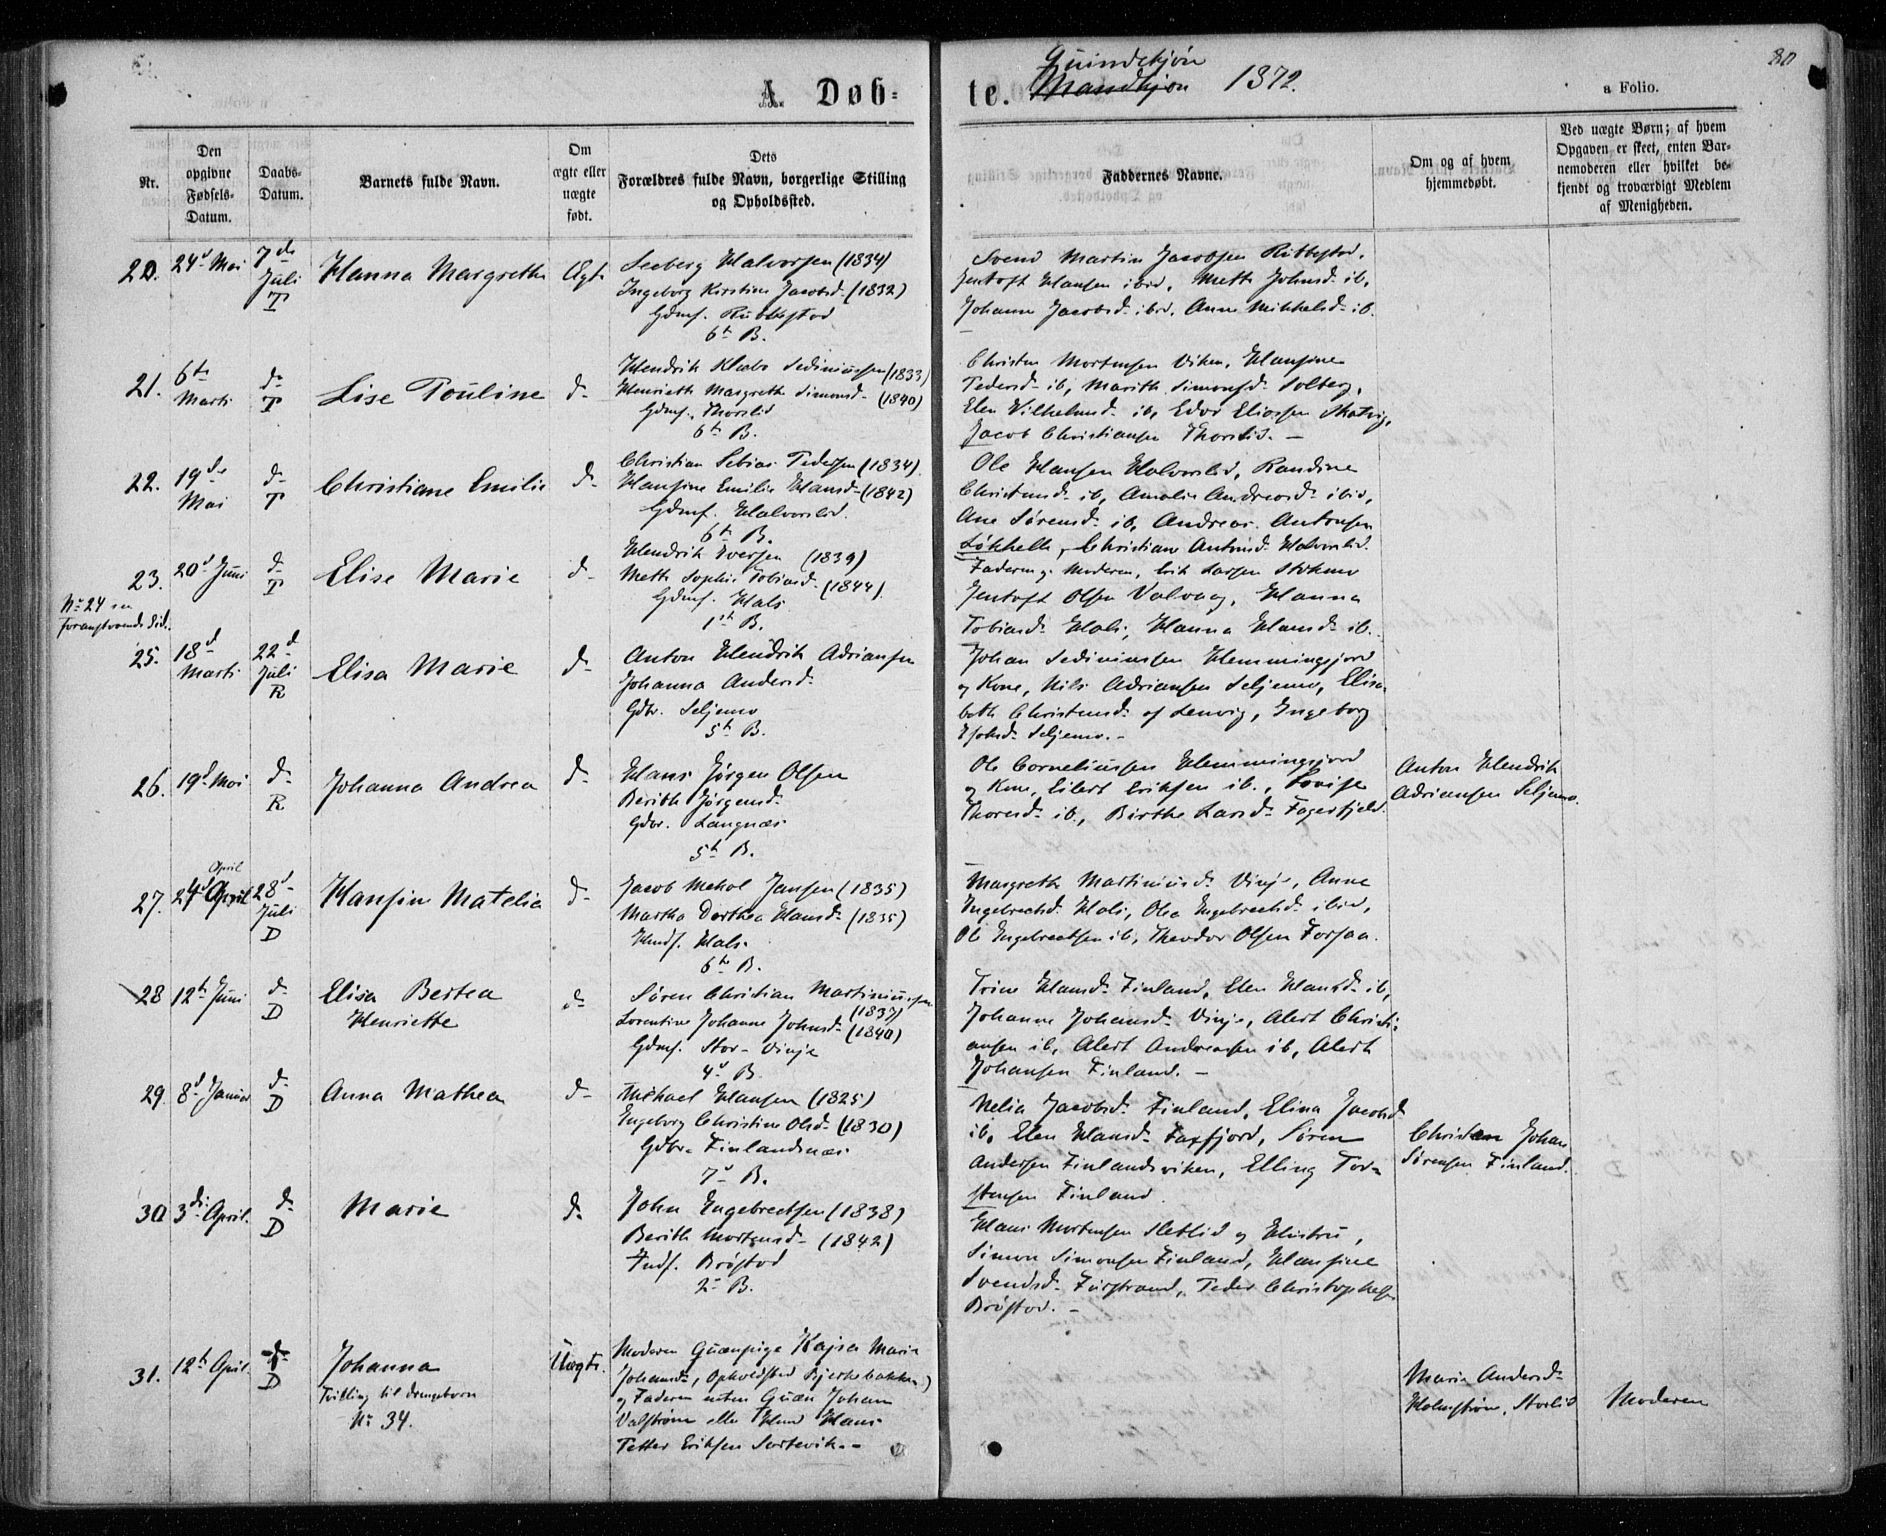 80
A. Døb-
te.
Quindekjøn
Mandkjøn 1872.
a Folio.
Nr.
Den
opgivne
Fødsels-
Datum.
Daabs-
Datum.
Barnets fulde Navn.
Om
ægte eller
uægte
født.
Dets
Forældres fulde Navn, borgerlige Stilling
og Opholdssted.
Faddernes Navne.
Om og af hvem
hjemmedøbt.
Ved uægte Børn; af hvem
Opgaven er skeet, enten Bar-
nemoderen eller hvilket be-
kjendt og troværdigt Medlem
af Menigheden.
20. 24d Mai
7de
Juli
T
Hanna Margrethe
Ægte
Seeberg Halvorsen (1834)
Ingeborg Kirstine Jacobsd. (1832)
Gdmf.
6te B.
Svend Martin Jacobsen
Jentoft Hansen ibid, Mette Johnsd. ib.
Johanne Jacobsd. ibid. Anne Mikkelsd. ib.
21. 6te
Marti
d-
T
Lise Pouline
d-
Hendrik Klæbo Sediniussen (1833)
Henriette Margrethe Simonsd. (1840)
Gdmf. Thorslid
6te B.
Christen Mortensen Viken, Hansine
Pedersd. ib, Marith Simonsd. Solberg,
Elen Wilhelmsd. ib, Edor Eliassen
Jacob Christiansen Thorslid. –
22. 19de
Mai
d-
T
Christiane Emilie
d-
Christian Pedersen (1834)
Hansine Emilie Hansd. (1842)
Gdmf. Halvorslid.
6te B.
Ole Hansen Halvorslid, Randine
Christensd. ib, Amalie Andreasd. ibid,
Ane Sørensd. ib, Andreas Antonsen
Christian Halvorslid.
23. 20d Juni
d-
T
Elise Marie
d-
Hendrik Iversen (1839)
Mette Sophie Tobiasd. (1844)
Gdmf. Hals
1ste B.
Faderen og Moderen, Erik Larsen
Jentoft Olsen Valvaag, Hanna
Tobiasd. Hals, Hanna Hansd. ib.
No 24 se
foranstaaende Side.
25. 18d
Marti
22d
Juli
R
Elisa Marie
d-
Anton Hendrik Adriansen
Johanna Andersd.
Gdbr. Seljemo
5te B.
Johan Sediniussen Hemmingsjord
og Kone, Nils Adriansen Seljemo, Elisa-
beth Christensd. af Lenvig, Ingeborg
Seljemo. –
26. 19d Mai
d-
R
Johanna Andrea
d-
Hans Jørgen Olsen
Berith Jørgensd.
Gdbr. Langnæs
5te B.
Ole Corneliussen Hemmingsjord
og Kone, Eilert Eriksen ib., Lovise
Thoresd. ib., Birthe Larsd. Fagerfjeld.
Anton Hendrik
Adriansen Seljemo.
27. 24d April
April
28d
Juli
D
Hansine Matelia
d-
Jacob Mekal Jansen (1835)
Martha Dorthea Hansd. (1835)
Hmdf. Hals
6te B.
Margrethe Martiniusd. Vinje, Anne
Engebrechtsd. Hals, Olea Engebrechtsd. ibid,
Ole Engebrechtsen ib, Theodor Olsen Forsaa.
28 12te Juni
d-
D
Elisa Bertea
Henriette
d-
Søren Christian Martiniussen
(1837)
Lorentine Johanne Johnsd. (1840)
Gdmf. Stor-Vinje
4d B.
Trine Hansd. Finland, Elen Hansd. ib,
Johanne Johansd. Vinje, Alert Christi-
ansen ib, Alert Andreasen ib, Alert
Johansen Finland. –
29. 8d Januar
d-
D
Anna Mathea
d-
Michael Hansen (1825)
Ingeborg Christine Olsd. (1830)
Gdbr. Finlandsnæs
7d B.
Nelia Jacobsd. Finland, Elina Jacobsd.
ib, Elen Hansd. Faxfjord, Søren
Andersen Finlandsviken, Elling Tor-
stensen Finland.
Christen Johan
Sørensen Finland.
30 3die April.
d-
D
Marie
d-
John Engebrechtsen (1838)
Berith Mortensd. (1842)
Indf. Brøstad
2d B.
Hans Mortensen Sletlid og Hustru,
Simon Simonsen Finland, Hansine
Svendsd. Furstrand, Peder Christophersen
Brøstad. –
31. 12te April.
d-
D
Johanna
Tvilling til drengebarn
No 34.
Uægte.
Moderen Quænpige Kajsa Maria
Johansd., Opholdssted Bjerkebakken)
og Faderen enten Quæn Johan
Valstrøm eller Hans
Petter Eriksen Sortevik. –
Maria Andersd.
Holmstrøm, Storlid
Moderen